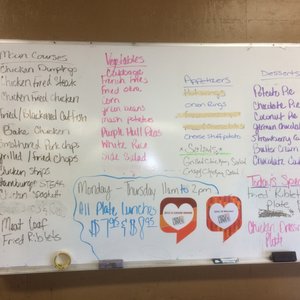 Main Courses
Chicken Dumplings
Chicken Fried Steak
Chicken Fried Chicken
Fried/Blackened Catfish
Bake Chicken
Smothered Pork Chops
Grilled/Fried Chops
Chicken Strips
Hamburger Steak
Chicken Spaghetti
Meat Loaf
Fried Riblets
Vegetables
Cabbage
French Fries
Fried Okra
Corn
Green Beans
Mash Potatoes
Purple Hull Peas
White Rice
Side Salad
Appetizers
Onion Rings
Salads
Grilled Chicken Salad
Crispy Chicken Salad
Desserts
Potato Pie
Chocolate Pie
Coconut Pie
German Chocolate
Strawberry
Butter Cream
Chocolate Cake
Today's Special
Fried Riblet
Plate
Chicken Dressing
Plate
Monday - Thursday 11am to 2pm
All Plate Lunches
$7.95 & $8.95